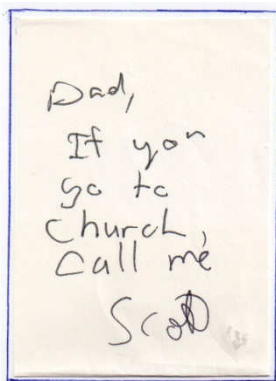 Dad,
If you
go to
church,
Call me
Scott